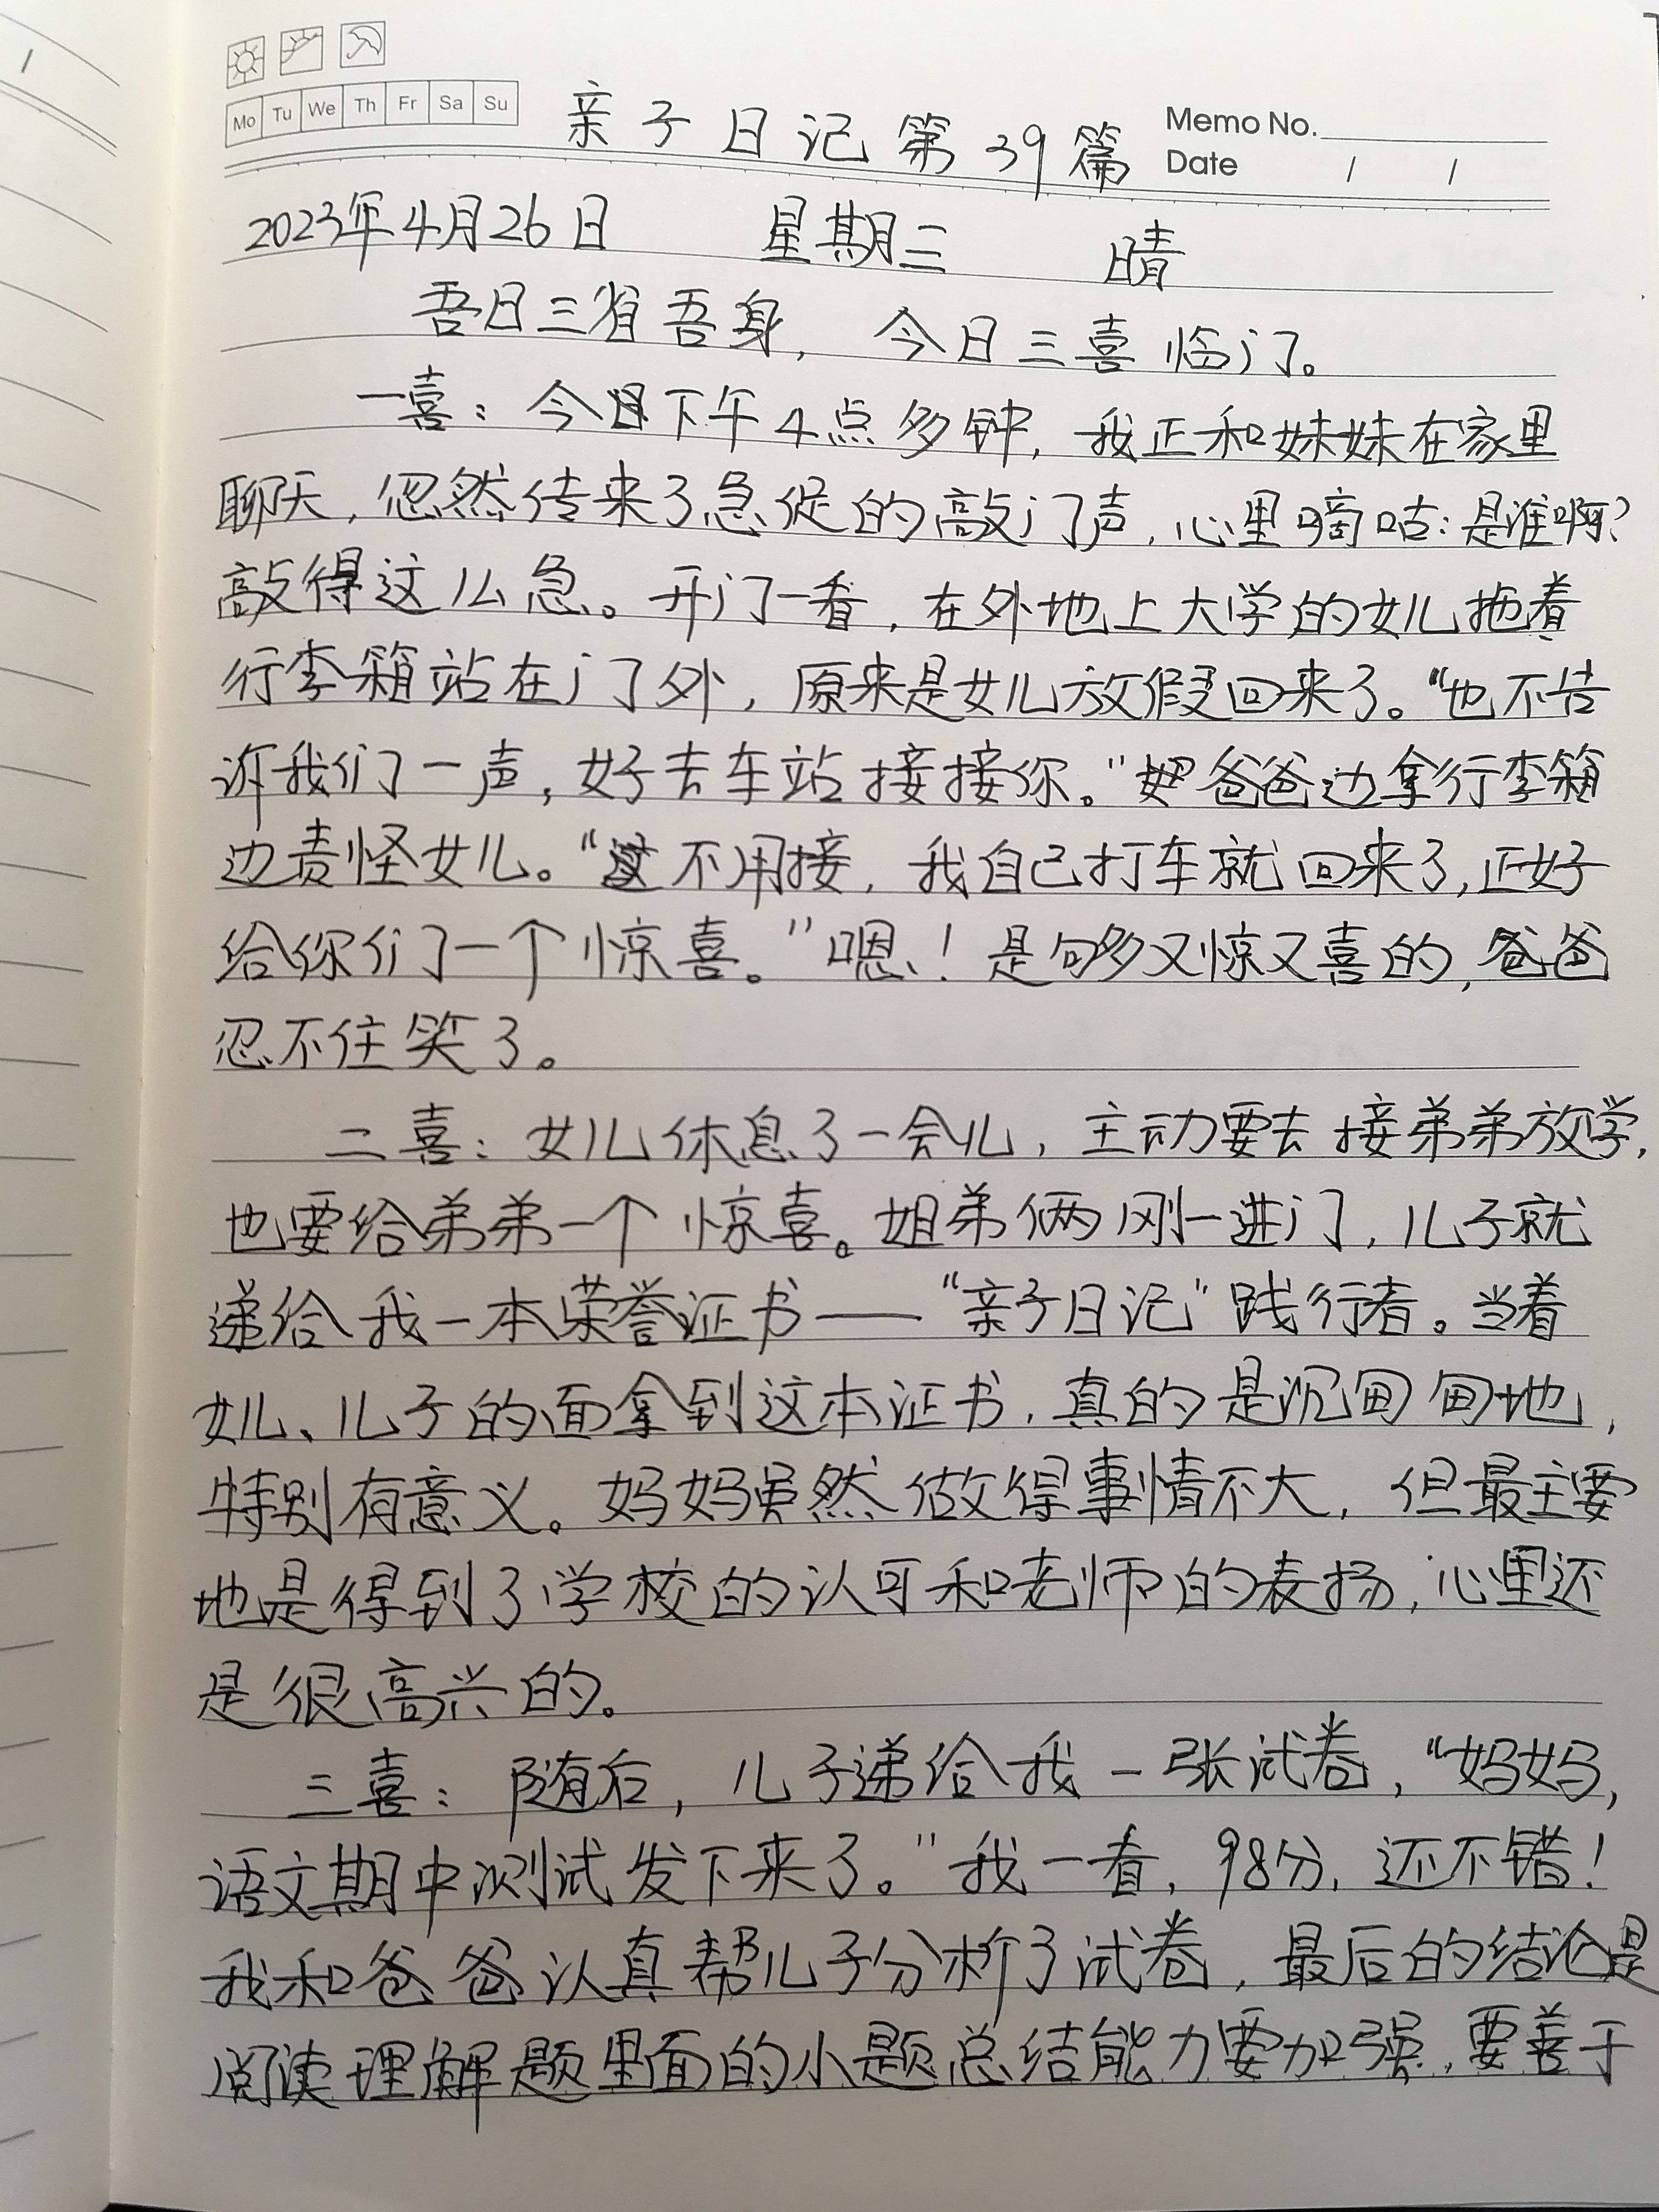 Mo Tu We Th Fr Sa Su
亲子日记第39篇
Memo No.
Date / /
2023年4月26日 星期三 晴
吾日三省吾身，今日三喜临门。
一喜：今日下午4点多钟，我正和妹妹在家里
聊天，忽然传来了急促的敲门声，心里嘀咕：是谁啊？
敲得这么急。开门一看，在外地上大学的女儿拖着
行李箱站在门外，原来是女儿放假回来了。“也不告
诉我们一声，好去车站接接你。”爸爸边拿行李箱
边责怪女儿。“不用接，我自己打车就回来了，正好
给你们一个惊喜。”嗯！是够又惊又喜的，爸爸
忍不住笑了。
二喜：女儿休息了一会儿，主动要去接弟弟放学，
也要给弟弟一个惊喜。姐弟俩刚一进门，儿子就
递给我一本荣誉证书——“亲子日记”践行者。当着
女儿、儿子的面拿到这本证书，真的是沉甸甸地，
特别有意义。妈妈虽然做得事情不大，但最主要
地是得到了学校的认可和老师的表扬，心里还
是很高兴的。
三喜：随后，儿子递给我一张试卷，“妈妈，
语文期中测试发下来了。”我一看，98分，还不错！
我和爸爸认真帮儿子分析了试卷，最后的结论是
阅读理解题里面的小题总结能力要加强，要善于
/